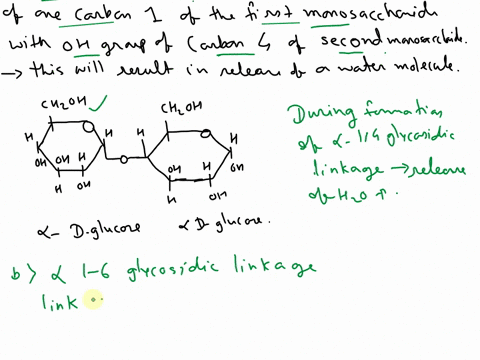 of one carbon 1 of the first monosaccharide
with OH group of Carbon 4 of second monosaccharide.
→ this will result in release of a water molecule.
CH2OH ✓ CH2OH
H O H H O H
OH OH H O OH OH
H OH H OH
α- D-glucose α D-glucose.
During formation
of α-1,4 glycosidic
linkage → release
of H2O ↑.
b> α 1-6 glycosidic linkage
link